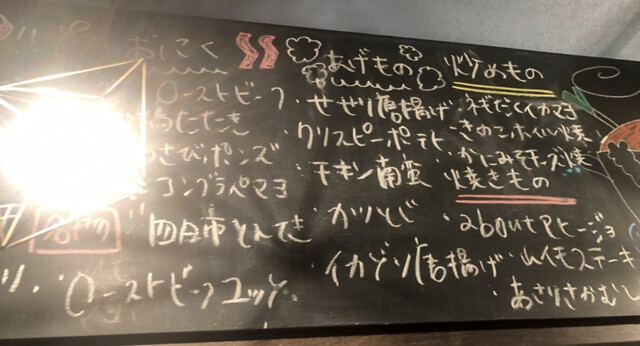 おにく
ローストビーフ
たたき
わさびポンズ
コンブラペマヨ
名物
四日市とんてき
ローストビーフユッケ
あげもの
・せせり唐揚げ
・クリスピーポテト
・チキン南蛮
・カツとじ
・イカゲソ唐揚げ
炒めもの
・ねぎだくイカマヨ
・きのこホイル焼
・かにみそチーズ焼
焼きもの
・aboutアヒージョ
・山イモステーキ
・あさりさかむし